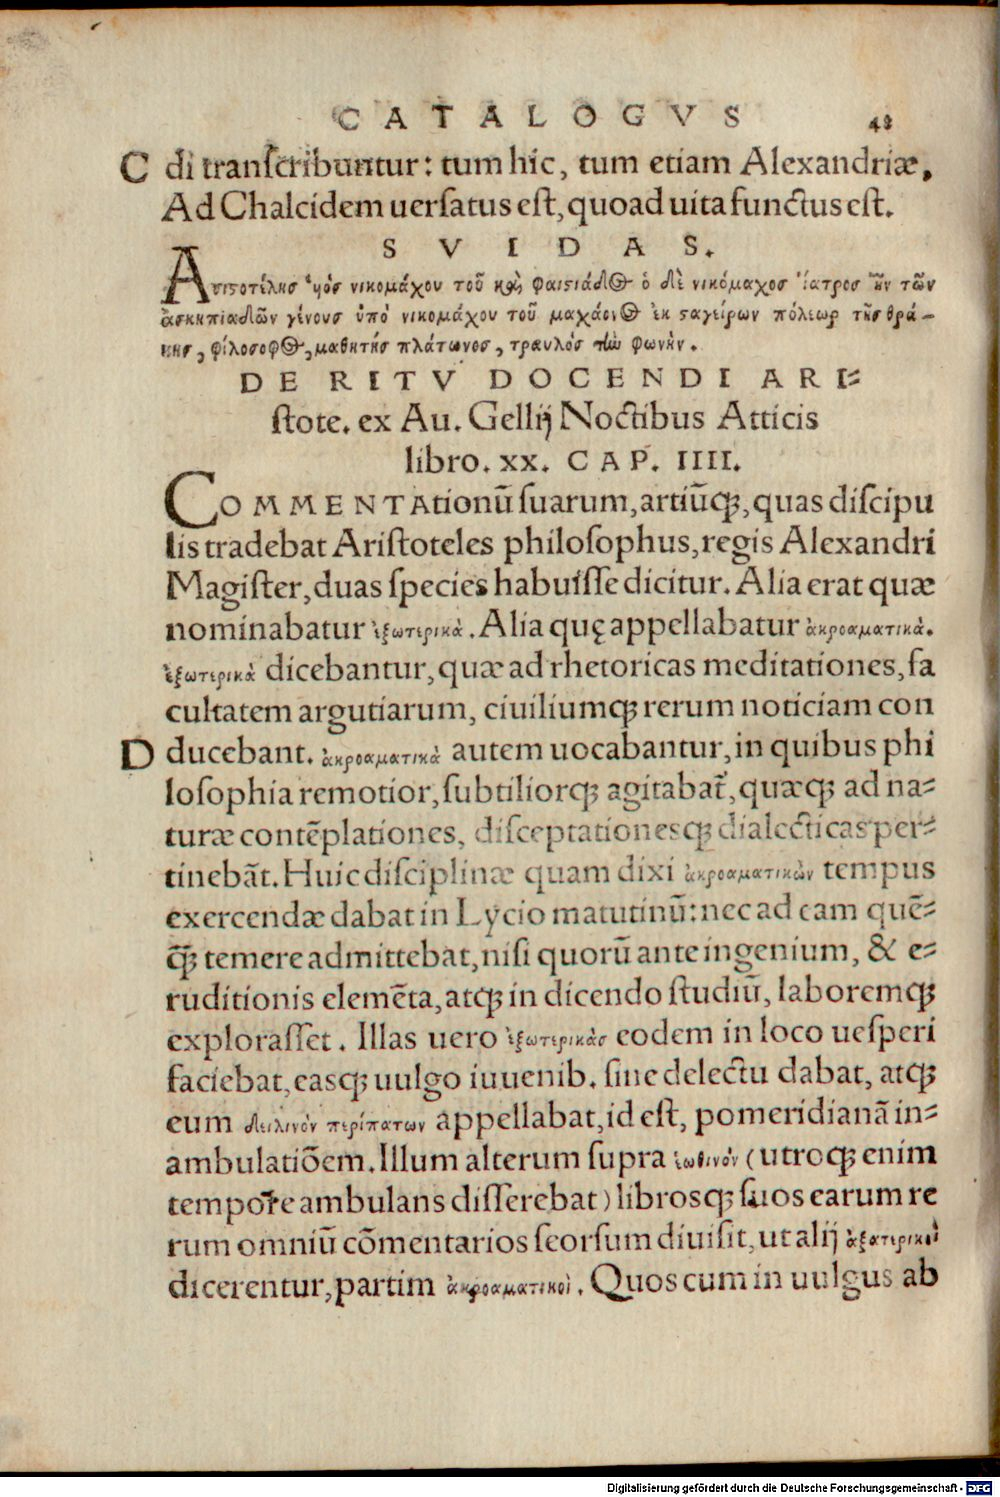 CATALOGVS 48
C di transcribuntur: tum hic, tum etiam Alexandriæ,
Ad Chalcidem uersatus est, quoad uita functus est.
SVIDAS.
Αριστοτέλης ὑιός νικομάχου τοῦ καὶ φαιστιάδος ὁ δὲ νικόμαχος ἰατρος ἦν τῶν
ἀσκηπιαδῶν γένους ὑπὸ νικομάχου τοῦ μαχάονος ἐκ σταγείρων πόλεωρ τῆς θρά-
κης, φίλοσοφος, μαθητής πλάτωνος, τραυλός τὼ φωνὴν.
DE RITV DOCENDI ARI-
stote. ex Au. Gellij Noctibus Atticis
libro. xx. CAP. IIII.
COMMENTAtionū suarum, artiūq;, quas discipu
lis tradebat Aristoteles philosophus, regis Alexandri
Magister, duas species habuisse dicitur. Alia erat quæ
nominabatur ἐξωτερικὰ. Alia quę appellabatur ἀκροαματικὰ.
ἐξωτερικὰ dicebantur, quæ ad rhetoricas meditationes, fa
cultatem argutiarum, ciuiliumq; rerum noticiam con
D ducebant. ἀκροαματικὰ autem uocabantur, in quibus phi
losophia remotior, subtiliorq; agitabat̃, quæq; ad na-
turæ contēplationes, disceptationesq; dialecticas per-
tinebāt. Huic disciplinæ quam dixi ἀκροαματικὼν tempus
exercendæ dabat in Lycio matutinū: nec ad eam quē-
q̃; temere admittebat, nisi quorū ante ingenium, & e-
ruditionis elemēta, atq; in dicendo studiū, laboremq;
explorasset. Illas uero ἐξωτερικὰς eodem in loco uesperi
faciebat, easq; uulgo iuuenib. sine delectu dabat, atq;
eum δειλινὸν περίπατων appellabat, id est, pomeridianā in-
ambulatiōem. Illum alterum supra ἑωθινὸν (utroq; enim
tempore ambulans disserebat) librosq; suos earum re
rum omniū cōmentarios seorsum diuisit, ut alij ἐξωτερικοὶ
dicerentur, partim ἀκροαματικοὶ. Quos cum in uulgus ab
Digitalisierung gefördert durch die Deutsche Forschungsgemeinschaft - DFG